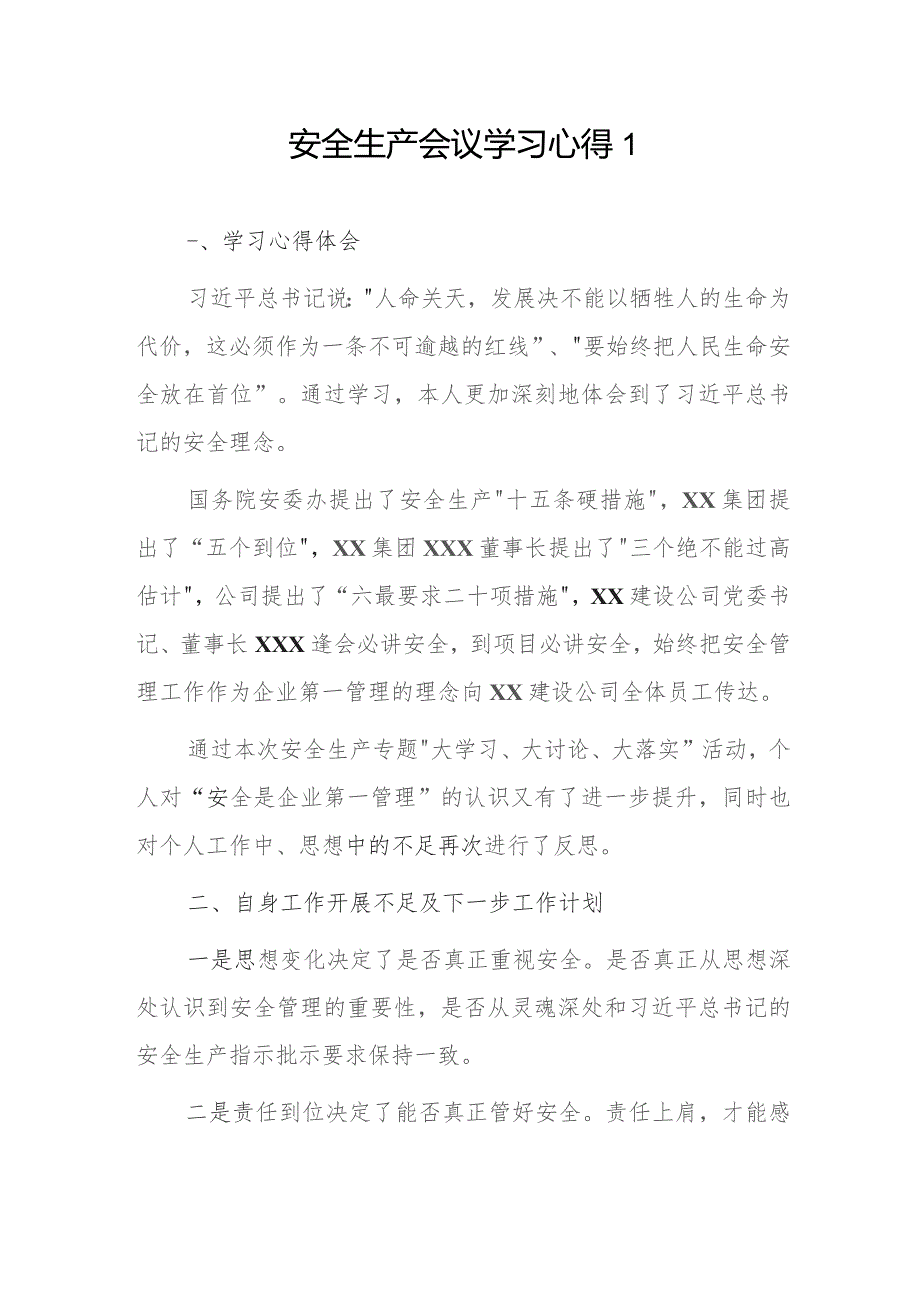 安全生产会议学习心得 1
-、学习心得体会
习近平总书记说："人命关天，发展决不能以牺牲人的生命为
代价，这必须作为一条不可逾越的红线”、"要始终把人民生命安
全放在首位”。通过学习，本人更加深刻地体会到了习近平总书
记的安全理念。
国务院安委办提出了安全生产"十五条硬措施"，XX 集团提
出了“五个到位"，XX 集团 XXX 董事长提出了"三个绝不能过高
估计"，公司提出了“六最要求二十项措施"，XX 建设公司党委书
记、董事长 XXX 逢会必讲安全，到项目必讲安全，始终把安全管
理工作作为企业第一管理的理念向 XX 建设公司全体员工传达。
通过本次安全生产专题"大学习、大讨论、大落实”活动，个
人对“安全是企业第一管理”的认识又有了进一步提升，同时也
对个人工作中、思想中的不足再次进行了反思。
二、自身工作开展不足及下一步工作计划
一是思想变化决定了是否真正重视安全。是否真正从思想深
处认识到安全管理的重要性，是否从灵魂深处和习近平总书记的
安全生产指示批示要求保持一致。
二是责任到位决定了能否真正管好安全。责任上肩，才能感